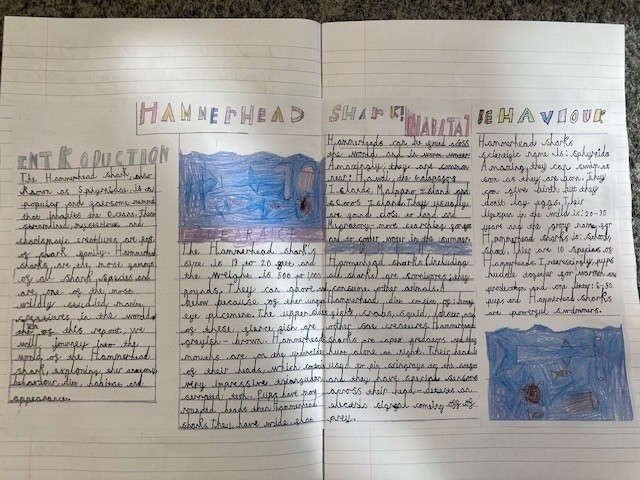 HAMMERHEAD SHARK!
INTRODUCTION
The Hammerhead shark, also
known as Sphyrnidae is a
popular and gaersome mammal
that inhabits the Oceans. These
streamlined, mysterious and
charismatic creatures are part
of shark family. Hammerhead
sharks are the most famous
of all shark species and
are one of the most
wildly studied marine
creatures in the world.
of this report, we
will journey into the
world of the Hammerhead
shark, exploring their anatomy,
behaviour, diet, habitat and
appearance.
APPEARANCE
The Hammerhead shark's
size is 14 to 20 feet and
the weight is 500 to 1,000
pounds. They can above and
below because of their unique
eye placement. The upper sides
of these giant fish are
greyish-brown. Hammerhead
mouths are on the underside
of their heads, which contain
very impressive triangular
serrated teeth. Pups have more
rounded heads than Hammerhead
sharks. They have wide
HABITAT
Hammerheads can be found across
the world and in warm water.
Amazingly, they are common
near: Hawaii, the Galapagos
Islands, Malpelo Island and
Cocos Island. They usually
are found close to land and
migratory-move searching for
and to cooler water in the summer.
Hammerhead sharks (including
all sharks) are carnivores; they
consume other animals. A
Hammerhead diet consist of: bony
fish, crabs, squid, lobster and
other sea creatures. Hammerhead
sharks are apex predators and they
hunt alone at night. Their head is
used to pin stingrays to the
and they have special sensors
across their head - detects an
electric signal coming off of
prey.
BEHAVIOUR
Hammerhead sharks
scientific name is: Sphyrnida
Amazing, they can swim as
soon as they are born. They
can give birth but they
don't lay eggs. Their
lifespan in the wild is: 20-30
years and the group name for
Hammerhead sharks is: School,
shoal. There are 10 species of
Hammerheads. Interestingly, pups
huddle together for warmth and
protection and one litter: 6-50
pups and Hammerhead sharks
are powerful swimmers.